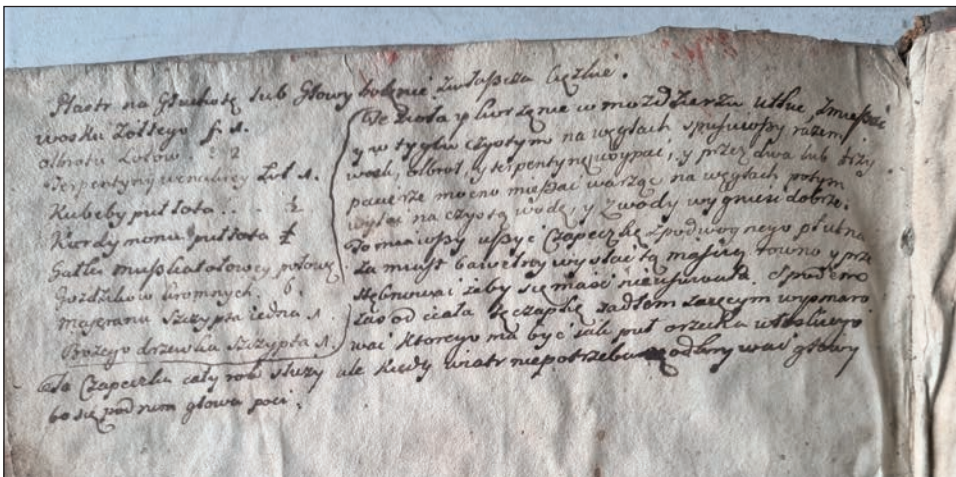 Plastr na Głuchotę lub Głowy bolenie zwłaszcza Ciężkie.
wosku Żółtego ℔ 1.
olbrotu Łotow. 2
Terpentyny weneckiey Łot 1.
Kubeby puł łota . . . ½
Kardymonu puł łota ½
Gałki muszkatołowey połowę
Gozdzikow kromnych. 6.
majeranu szczypta iedna 1.
Bożego drzewka szczypta 1.
Te zioła y korzęnie w mozdzierzu utłuc, zmięszać
y w tyglu czystym na węglach spuściwszy razem
wosk, olbrot, y terpentynę, wsypać, y przez dwa lub trzy
pacierze mocno mieszać warząc na węglach potym
wylać na czystą wodę, y z wody wygnieść dobrze.
To miawszy uszyć Czapeczkę z podwoynego płutna
za miast bawełny wysłać tą maścią rowno y prze
stębnować żeby się maść nie zsuwała. Spodem
zaś od ciała tę czapkę sadłem zaięcym wysmaro
wać ktorego ma być iak puł orzecha włoskiego
Ta Czapeczka cały rok służy ale kiedy wiatr niepotrzeba odkrywać głowy
bo się pod nim głowa poci.